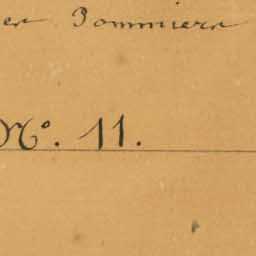 er Pommiers
Nº. 11.